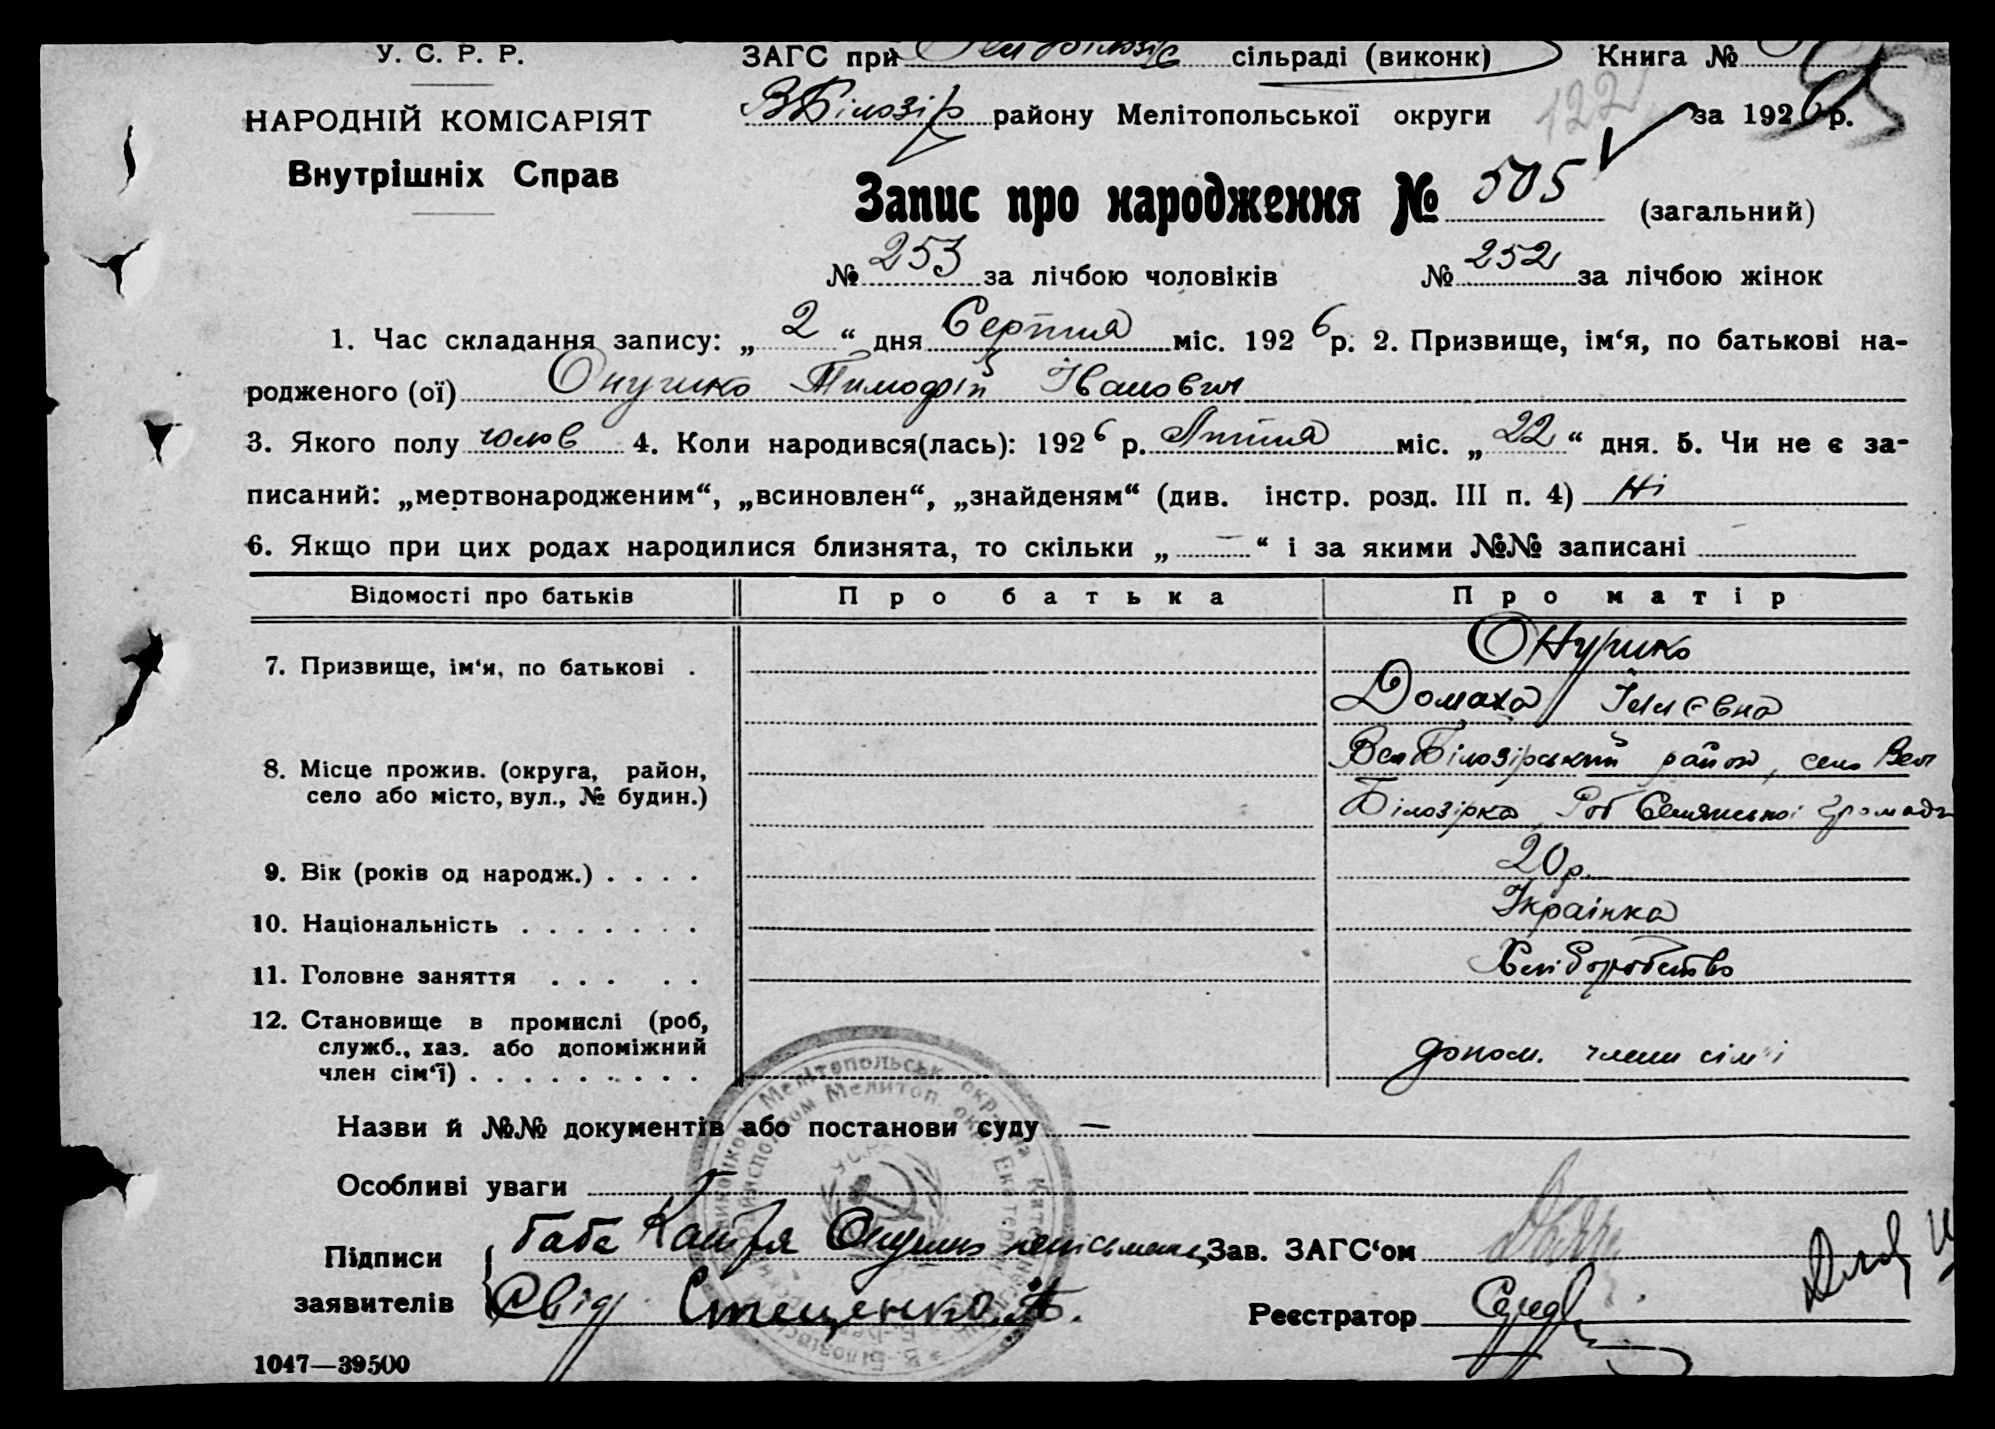 У. С. Р. Р.
ЗАГС при сільраді (виконк) Книга №
НАРОДНІЙ КОМІСАРІЯТ
Внутрішніх Справ
ВБілозір району Мелітопольської округи 122 за 1926 р.
Запис про народження № 505 (загальний)
№ 253 за лічбою чоловіків № 252 за лічбою жінок
1. Час складання запису: „ 2 “ дня Серпня міс. 1926 р. 2. Призвище, ім‘я, по батькові на-
родженого (ої) Онушко Тимофій Іванович
3. Якого полу чолов 4. Коли народився(лась): 1926 р. Липня міс. „ 22 “ дня. 5. Чи не є за-
писаний: „мертвонародженим“, „всиновлен“, „знайденям“ (див. інстр. розд. III п. 4) Ні
6. Якщо при цих родах народилися близнята, то скільки „ — “ і за якими №№ записані
Відомості про батьків Про батька Про матір
7. Призвище, ім‘я, по батькові . Онушко
Домаха Іллєвна
8. Місце прожив. (округа, район, село або місто, вул., № будин.) ВелБілозірський район, село Вел
Білозірка, громади
9. Вік (років од народж.) . . . . 20 р.
10. Національність . . . . . . . Українка
11. Головне заняття . . . . . Хліборобство
12. Становище в промислі (роб, служб., хаз. або допоміжний член сім‘ї) . . . . . . . . . допом. члени сім'ї
Назви й №№ документів або постанови суду —
Особливі уваги
Підписи заявителів баба Катря Онушко неписьмена
Свід Стещенко А.
Зав. ЗАГС‘ом
Реєстратор
1047—39500